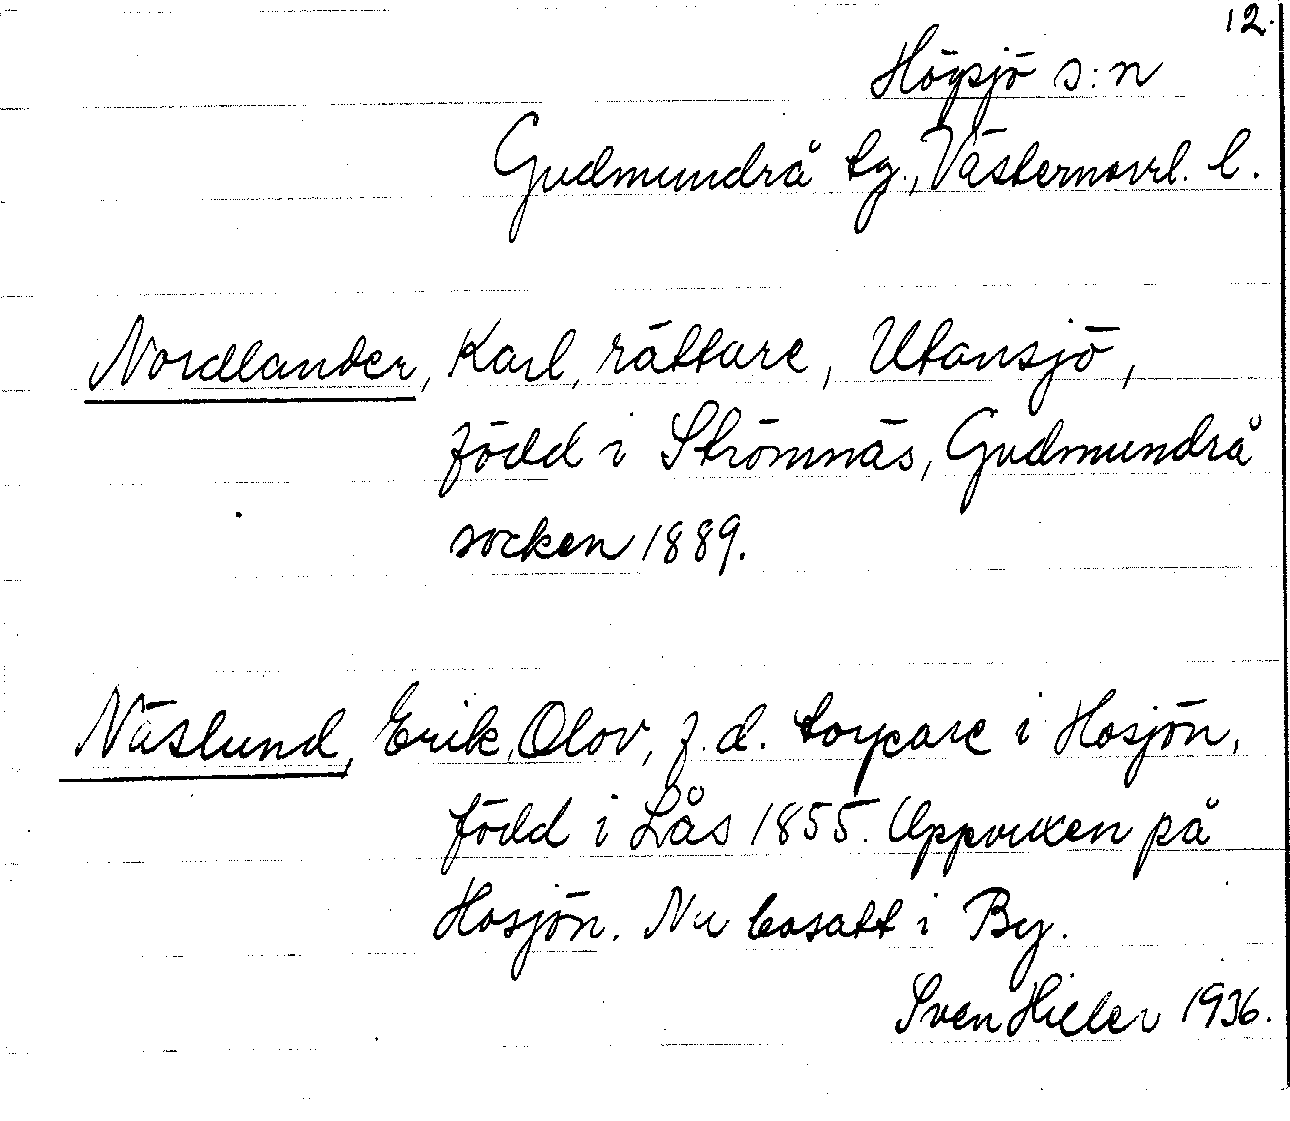 12.
Högsjö s:n
Gudmundrå tg., Västernorrl. l.
Nordlander, Karl, rättare, Utansjö,
född i Strömnäs, Gudmundrå
socken 1889.
Näslund, Erik, Olov, f.d. torpare i Hosjön,
född i Lås 1855. Uppvuxen på
Hosjön. Nu bosatt i By.
Sven Hiller 1936.